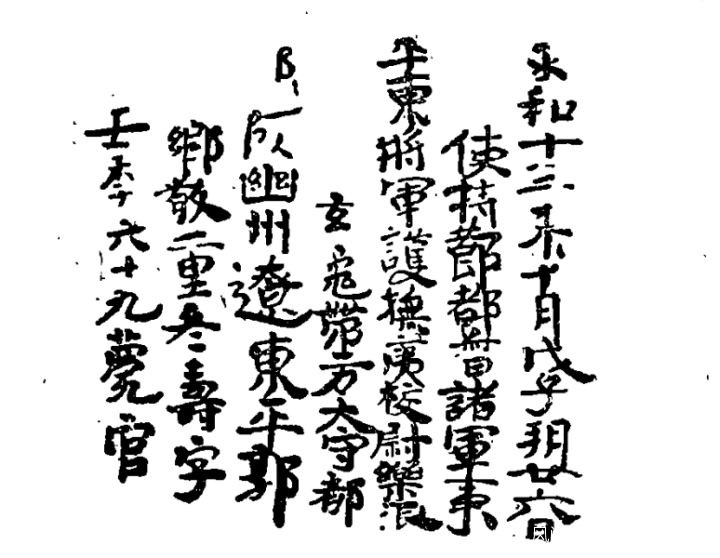 永和十三年十月戊子朔廿六日
使持節都督諸軍事
平東將軍護撫夷校尉樂浪
玄菟帶方大守都
幽州遼東平郭
鄉敬上里冬壽字
年六十九薨官